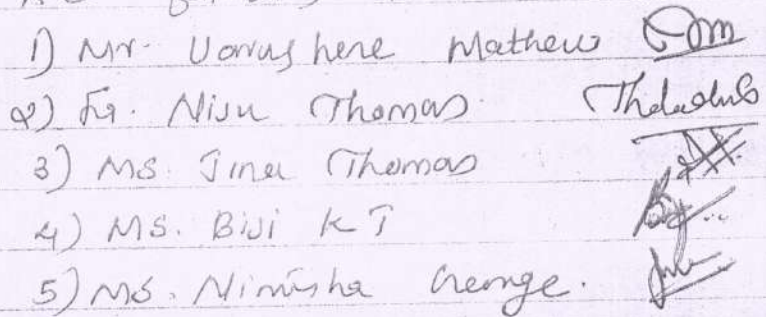 1) Mr. Varughese Mathew
2) Fr. Niju Thomas
3) Ms. Jina Thomas
4) Ms. Biji K T
5) Ms. Nimisha George.